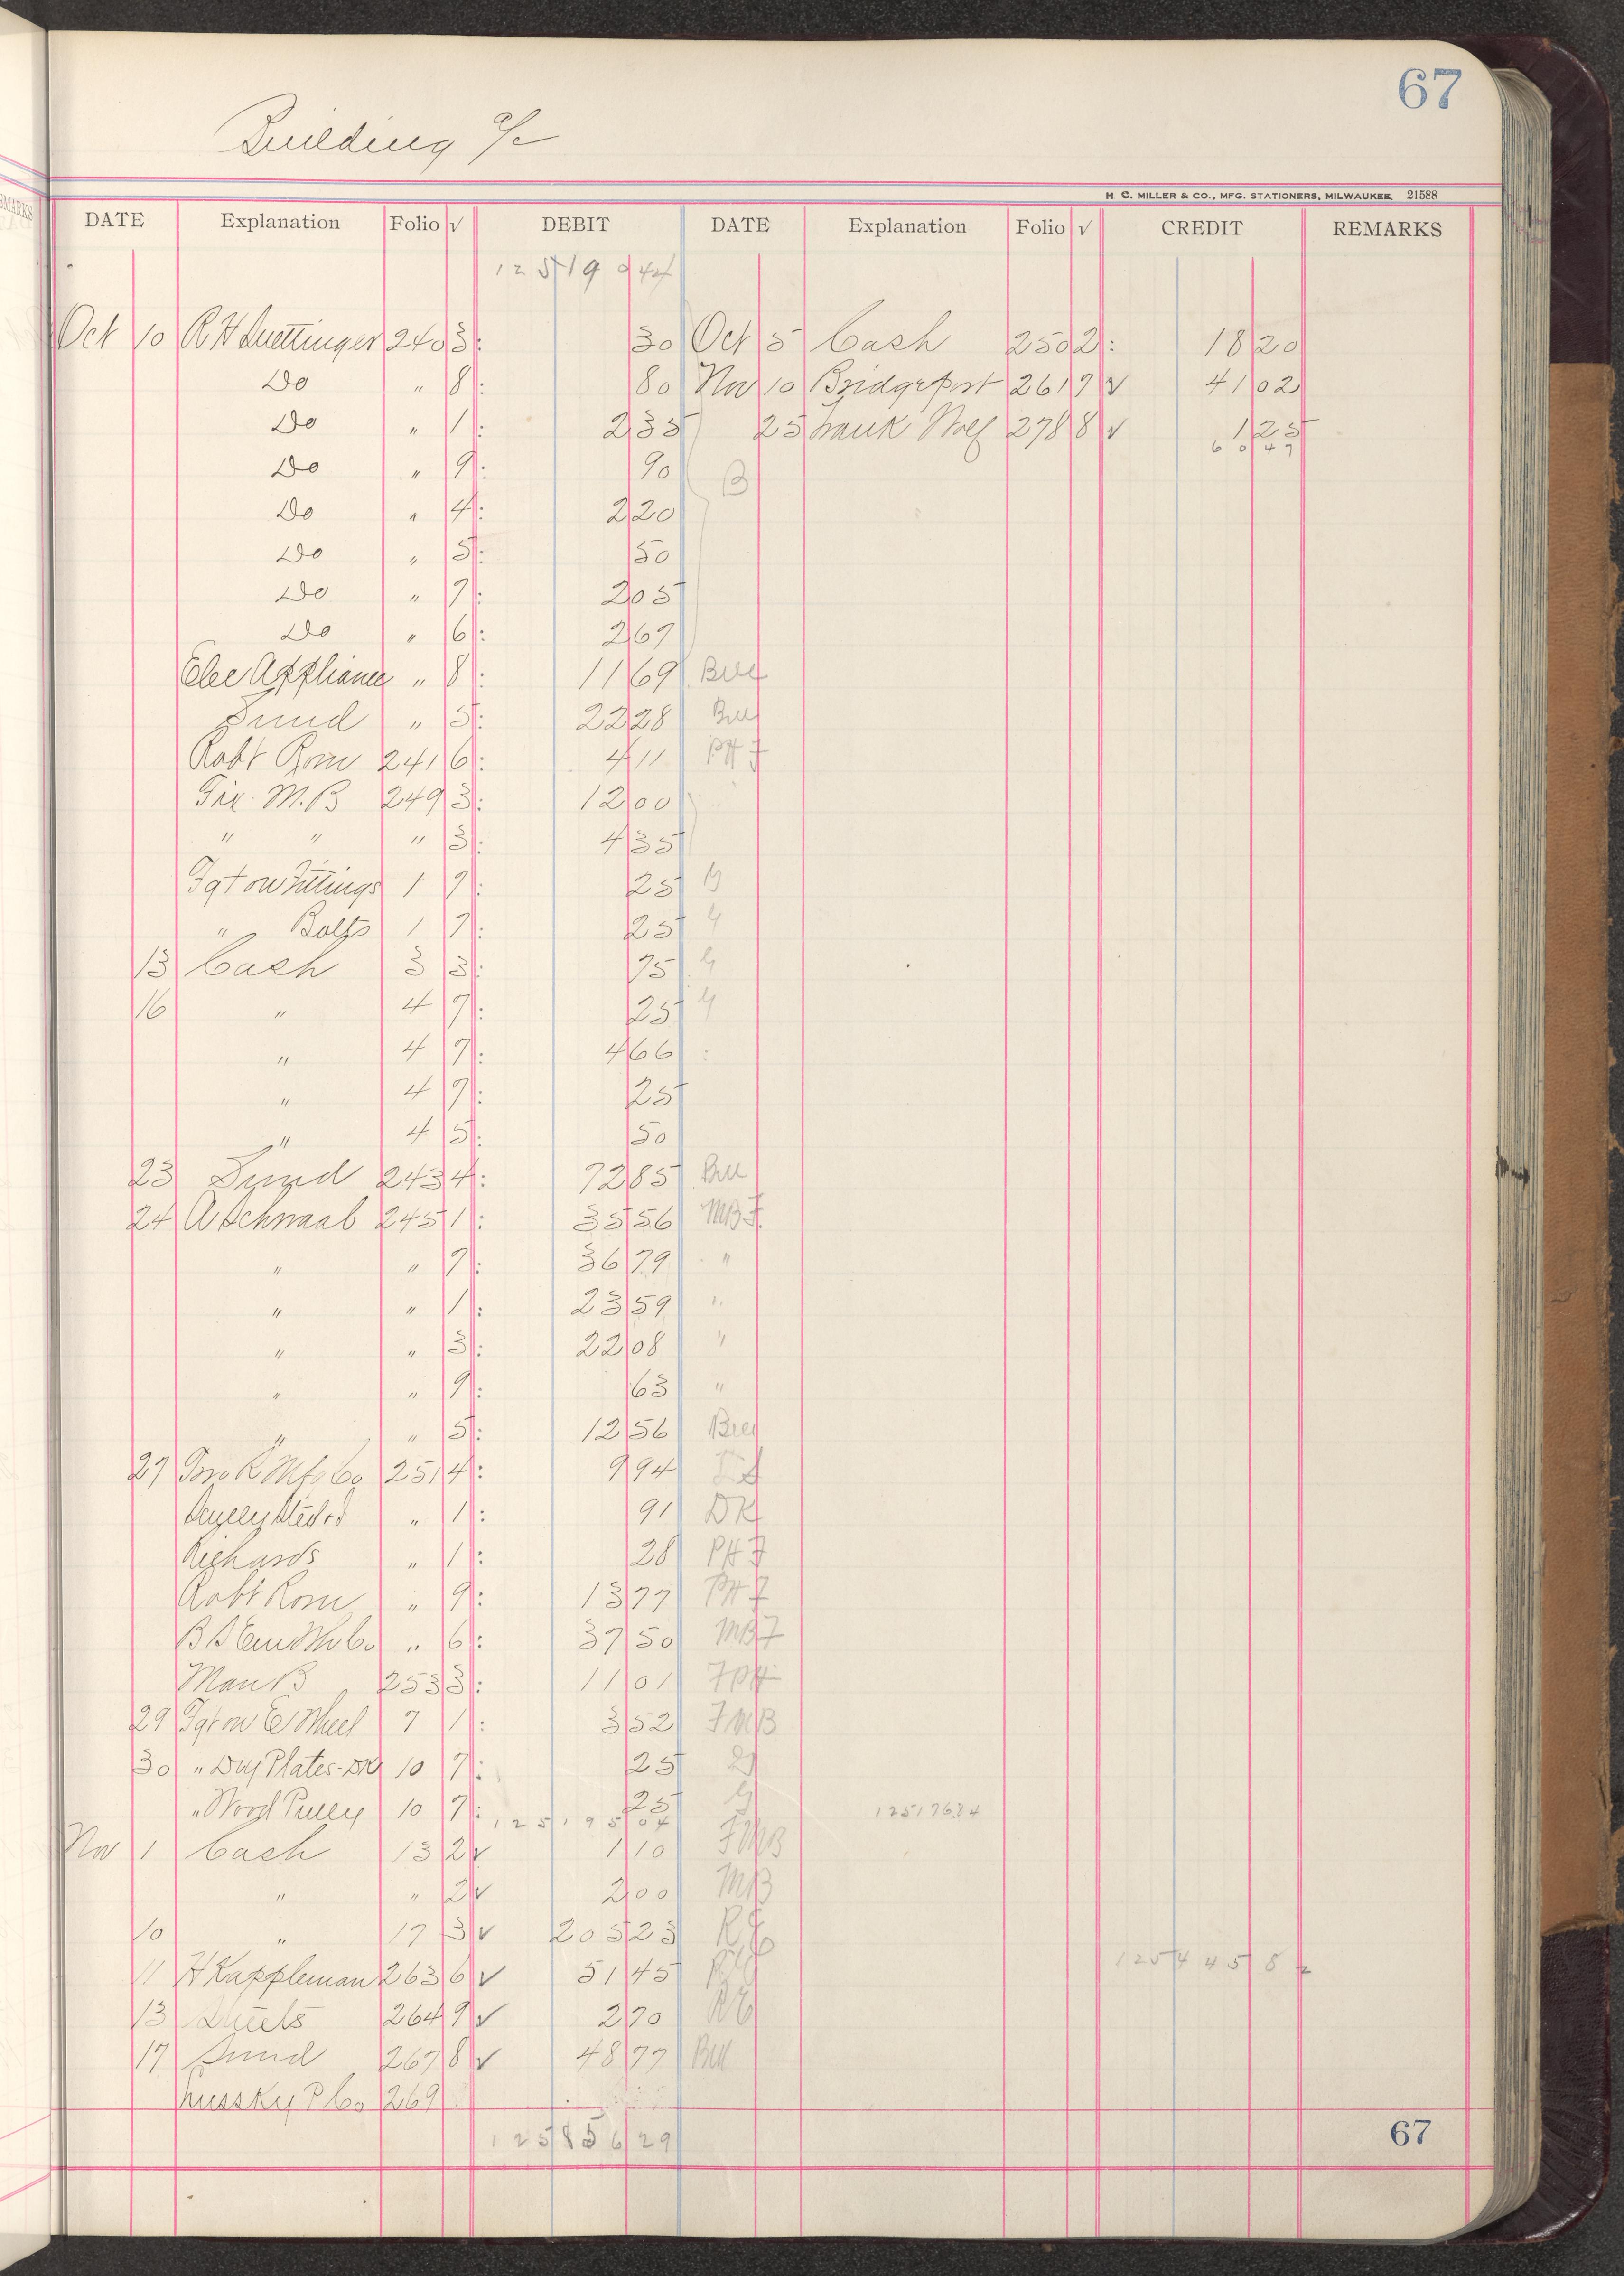 67
Building a/c
H. C. MILLER & CO., MFG. STATIONERS, MILWAUKEE. 21588
DATE Explanation Folio √ DEBIT DATE Explanation Folio √ CREDIT REMARKS
12519 44
Oct 10 R H Luettinger 240 3 30 Oct 5 Cash 250 2 18 20
Do " 8 80 Nov 10 Bridgeport 261 7 √ 41 02
Do " 1 2 35 25 Frank Wolf 278 8 √ 1 25
60 49
Do " 9 90 B
Do " 4 2 20
Do " 5 50
Do " 7 2 05
Do " 6 2 67
Elec Appliance " 8 11 69 Bill
Sund " 5 22 28 Bill
Robt Rom 241 6 4 11 PH F
Fix. M.B 249 3 12 00
" " " 3 4 35
Fgt on Fittings 1 7 25
" Bolts 1 7 25
13 Cash 3 3 75
16 " 4 7 25
" 4 7 4 66
" 4 7 25
" 4 5 50
23 Sund 243 4 72 85 Bill
24 A Schwaab 245 1 35 56 MB F
" " 7 36 79 "
" " 1 23 59 "
" " 3 22 08 "
" " 9 63 "
" " 5 12 56 Bill
27 Mfg Co 251 4 9 94
" 1 91 DK
Richards " 1 28 PH F
Robt Rom " 9 13 77 PH F
B S " 6 37 50 MB F
Man B 253 3 11 01 F PH
29 Fgt on E Wheel 7 1 3 52 F MB
30 " Plates-DK 10 7 25
" Wood Pulley 10 7 25
125195 04 1251 76.84
Nov 1 Cash 13 2 √ 1 10 F MB
" " 2 √ 2 00 MB
10 " 17 3 √ 205 23 RE
11 H Kappleman 263 6 √ 51 45
1254 45 8
13 Sheets 264 9 √ 2 70 RE
17 Sund 267 8 √ 48 77 Bill
269
125856 29
67